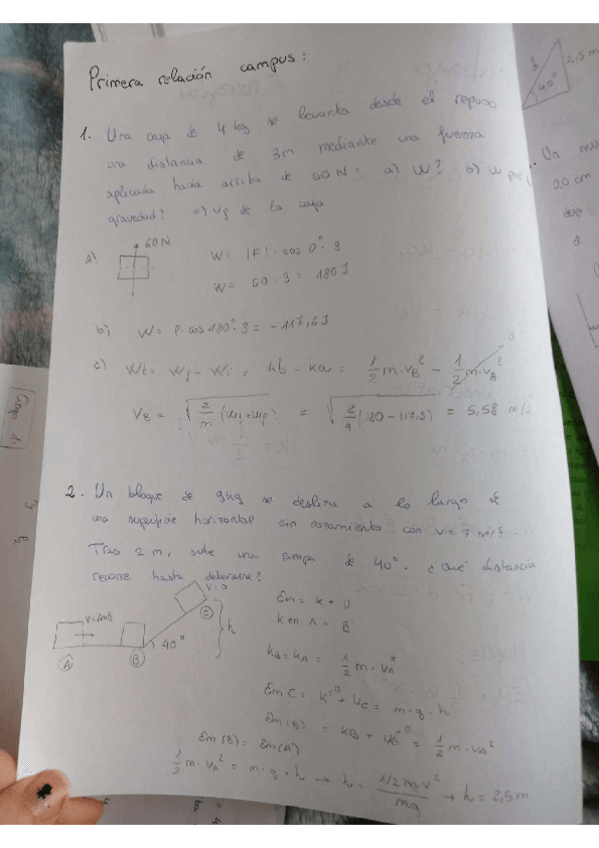 Primera relación campus:
1. Una caja de 4 kg se levanta desde el reposo
una distancia de 3m mediante una fuerza
aplicada hacia arriba de 60 N: a) W? b) W por
gravedad? c) vf de la caja
a)
60 N
W = |F| · cos 0° · 3
W = 60 · 3 = 180 J
b) W = P · cos 180° · 3 = -117,6 J
c) Wt = Wf - Wi = kb - ka = 1/2 m · vB² - 1/2 m · vA² 0
VB = √ 2/m = √ 2/4 (180 - 117,3) = 5,58 m/s
2. Un bloque de 9kg se desliza a lo largo de
una superficie horizontal sin rozamiento con vi= 7 m/s.
Tras 2 m, sube una rampa de 40°. ¿Qué distancia
recorre hasta detenerse?
V=0
40°
h
A
B
C
Em = K + U
k en A = B
kB = kA = 1/2 m · vA²
Em C = K =0 + UC = m · g · h
Em (B) = KB + UB =0 = 1/2 m · vA²
Em (B) = Em (A)
1/2 m · vA² = m · g · h → h = 1/2 m v² / mg → h = 2,5 m
d
2,5 m
40°
Un
20 cm